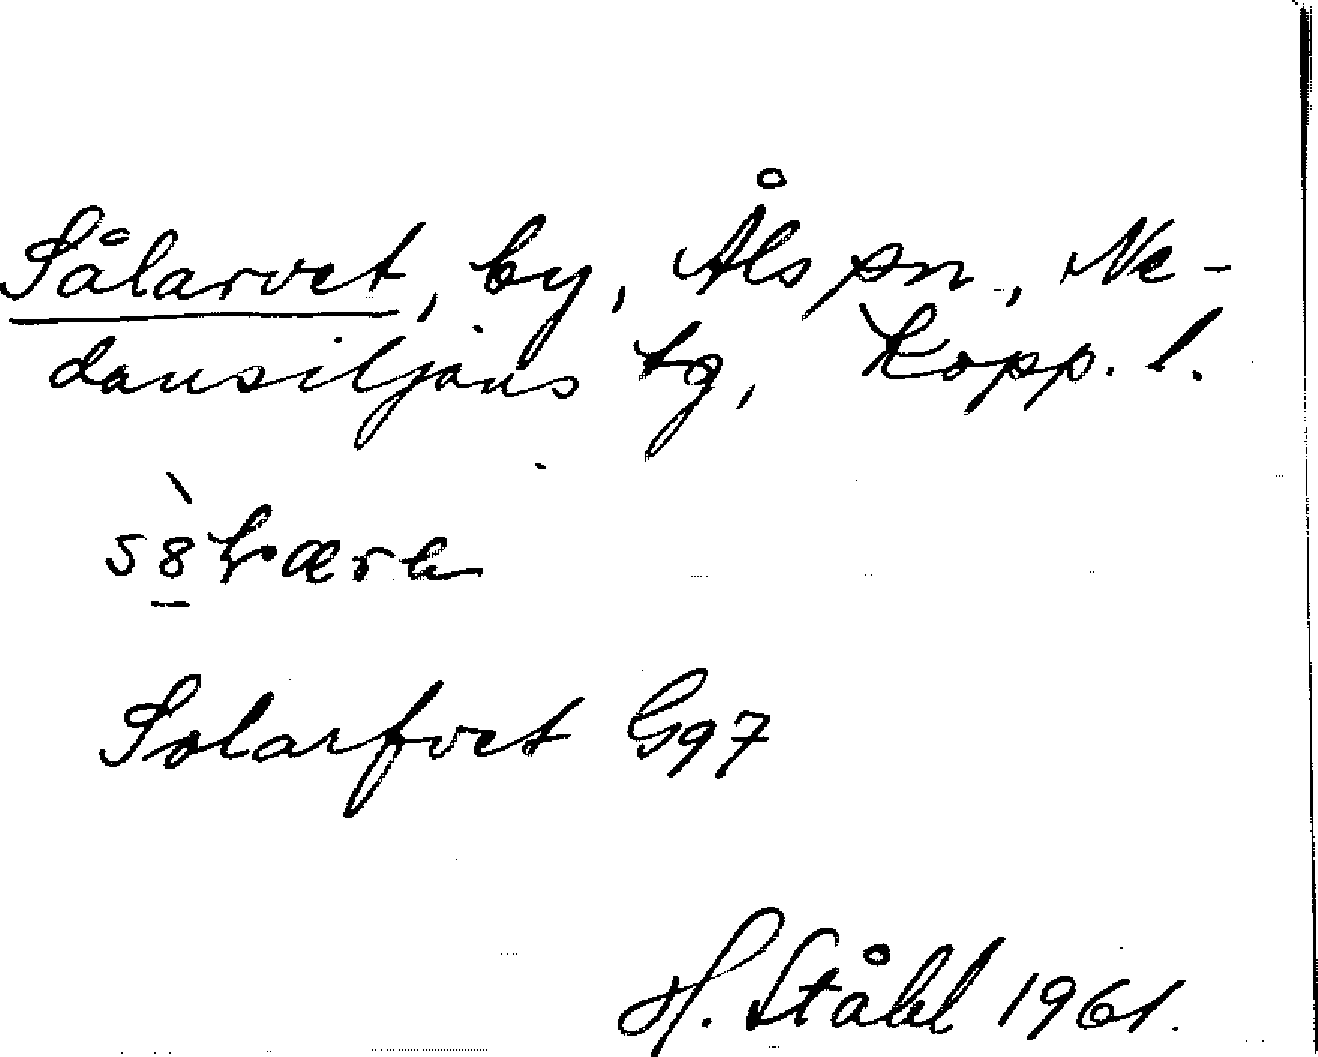 Sålarvet, by, Åls sn, Ne-
dansiljans tg, Kopp. l.
Solarfvet G97
H. Ståhl 1961.